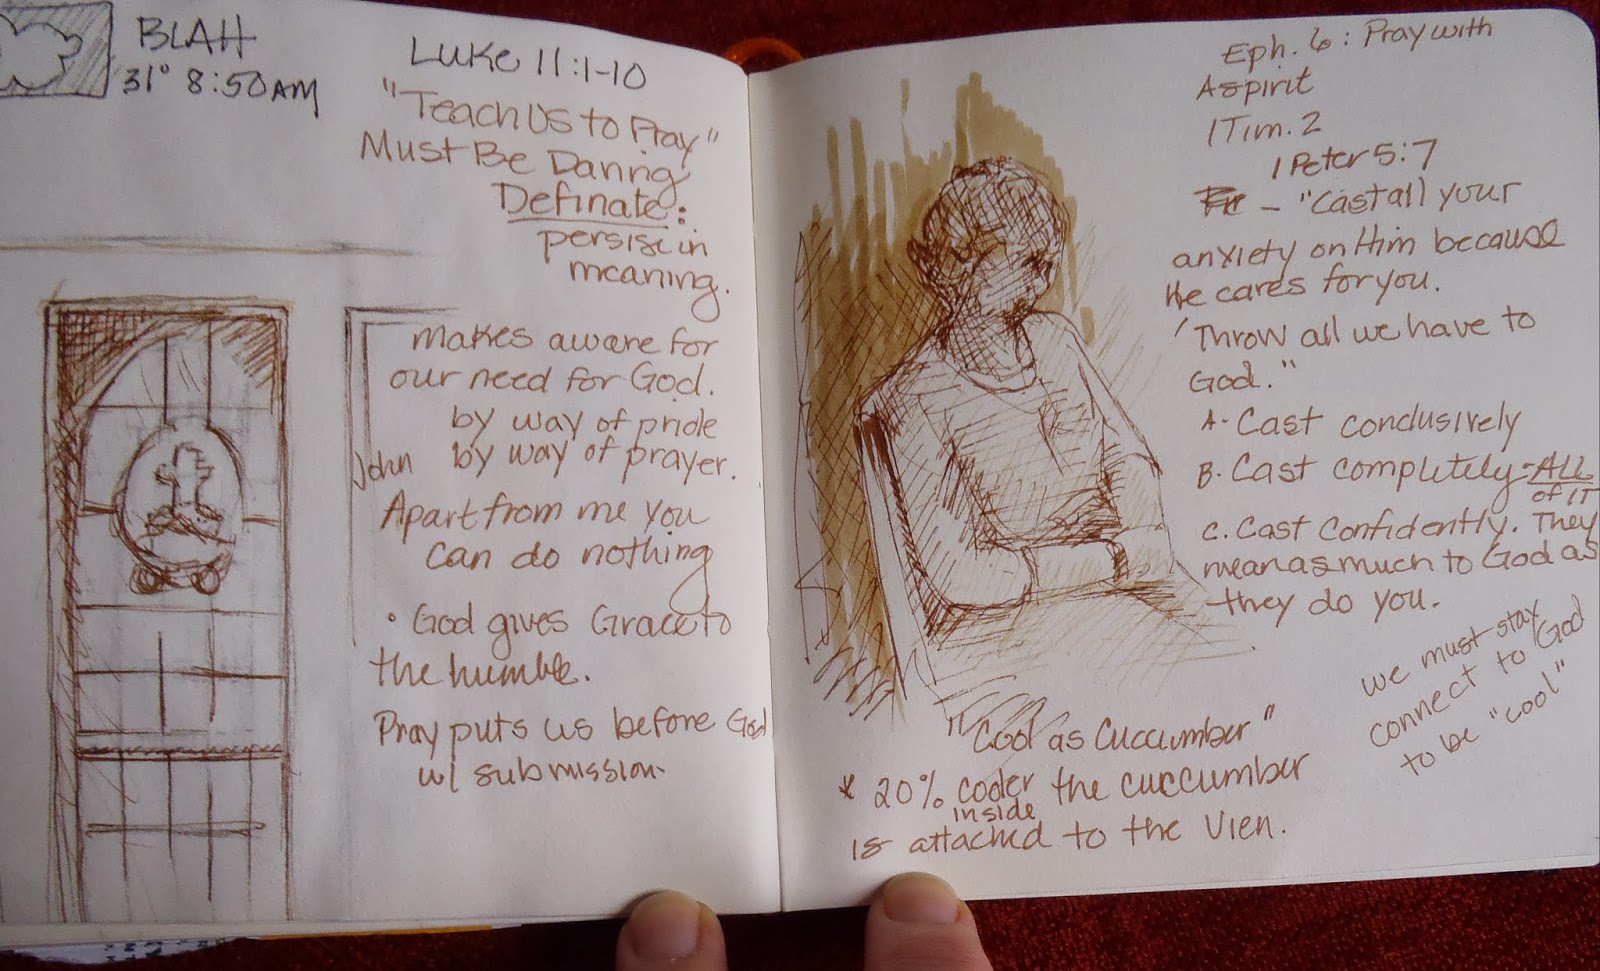 BLAH
31° 8:50AM
Luke 11:1-10
"Teach Us to Pray"
Must Be Daring
Definate:
persise in
meaning.
makes aware for
our need for God.
by way of pride
John by way of prayer.
Apart from me you
can do nothing
• God gives Grace to
the humble.
Pray puts us before God
w/ submission.
Eph. 6: Pray with
A spirit
1 Tim. 2
1 Peter 5:7
- "Cast all your
anxiety on Him because
He cares for you.
'Throw all we have to
God."
A- Cast conclusively
B. Cast completely - ALL
of IT
C. Cast confidently. They
mean as much to God as
they do you.
we must stay
connect to God
to be "cool"
"Cool as Cuccumber"
* 20% cooler the cuccumber
inside
is attached to the Vien.